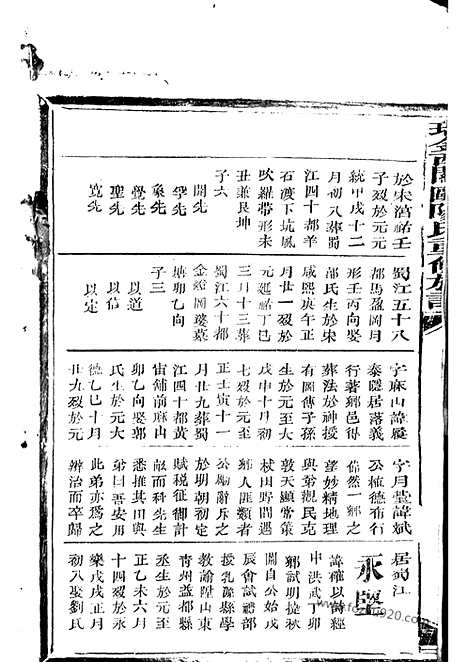 於宋淳祐壬
子歿於元元
統甲戌十二
月初八葬蜀
江四十都羊
石渡下坑風
吹羅帶形未
丑兼艮坤
子六
開先
金先
學先
彖先
覺先
聖先
寬先
蜀江五十八
都馬盈岡月
形壬丙向娶
邵氏生於宋
咸熙庚午正
月廿一歿於
元延祐丁巳
三月十三葬
蜀江六十都
金線岡瓊墓
塘卯乙向
子三
以道
以信
以定
字麻山諱凝
泰隱居落義
行著鄉邑得
葬法於神授
有圖傳子孫
生於元至大
戊申十月初
七歿於元至
正壬寅十一
月廿九葬蜀
江四十都黃
宙鋪前麻山
卯乙向娶郭
氏生於元大
德乙巳十月
廿九歿於元
字月堂諱斌
公植德布行
偉然一鄉之
望妙精地理
與弟觀民克
敦天顯常策
杖田野間遇
鄉人匪類者
公勵辭斥之
於明朝初定
賦稅征御計
畝而科先生
悉推其田與
弟曰吾安用
此弟亦爲之
辨治而卒歸
居蜀江
永堅
諱確以詩經
中洪武丁卯
鄉試明掟秋
開自公始戊
辰會試禮部
授乳源縣學
教諭陞山東
青州益都縣
丞生於元至
正乙未六月
十四歿於永
樂戊戌正月
初八娶劉氏